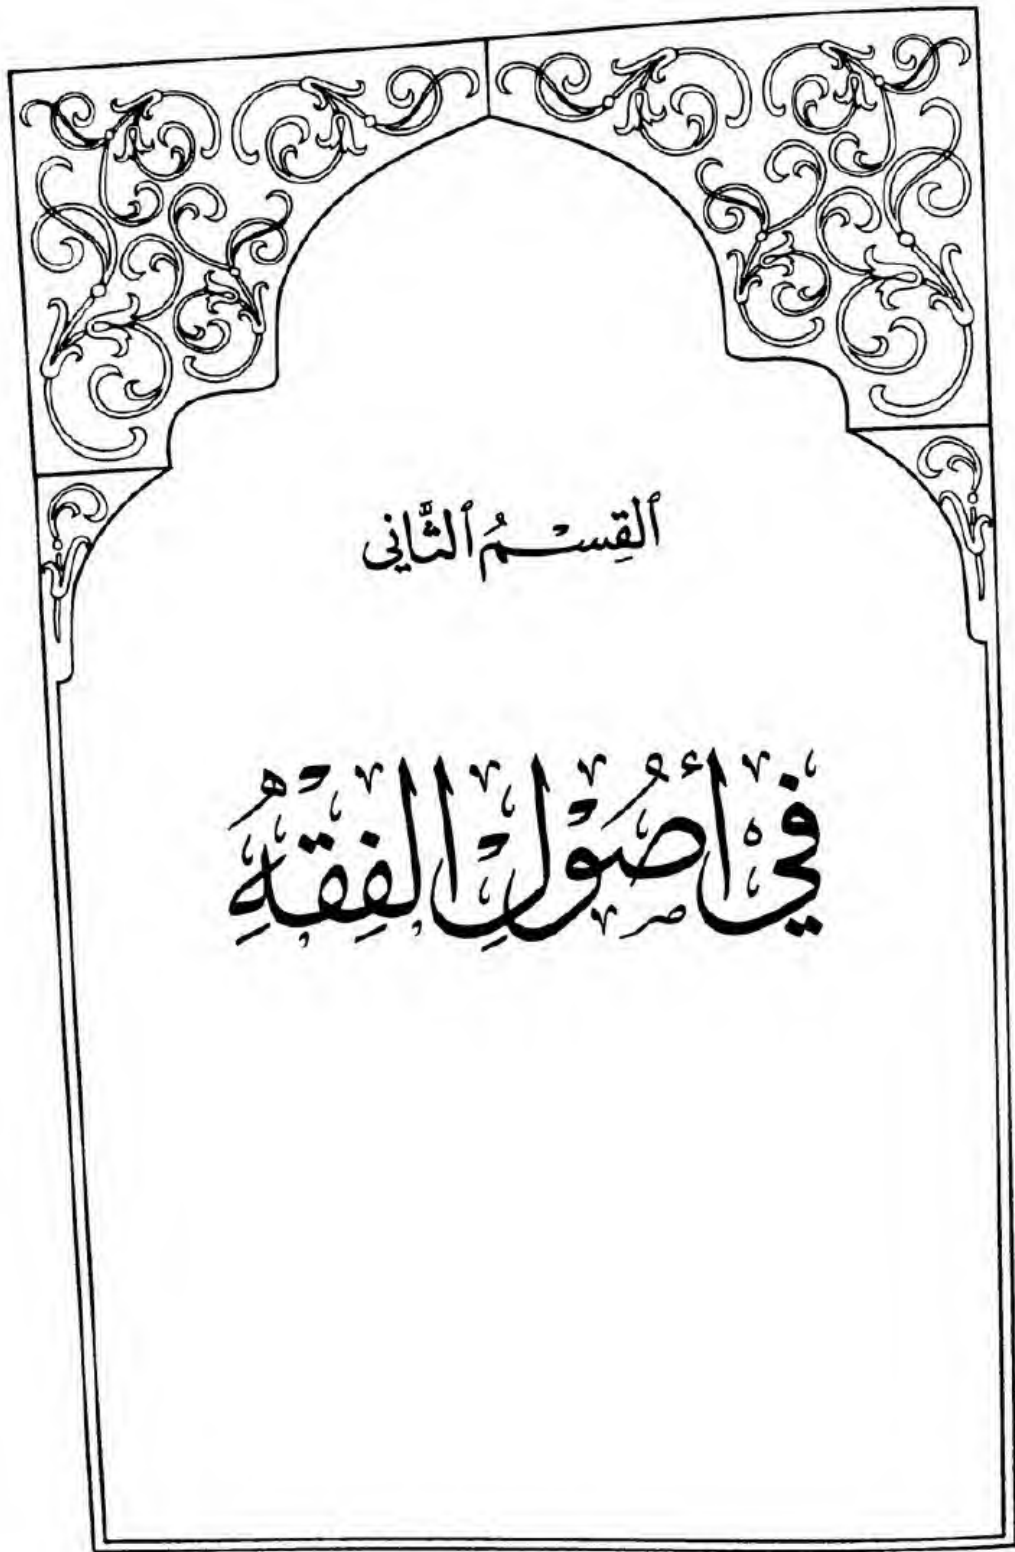 ٱلقِسْمُ ٱلثَّانِي
فِي أُصُوْلِ الفِقْهِ